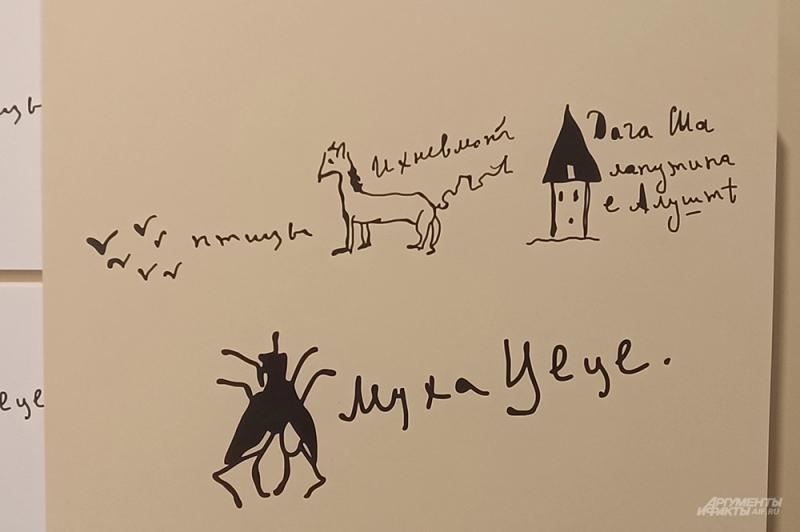 птицы
Ихневмон
Дача Ша
лапутина
в Алуштѣ
Муха Цеце.
АРГУМЕНТЫ
И ФАКТЫ AIF.RU